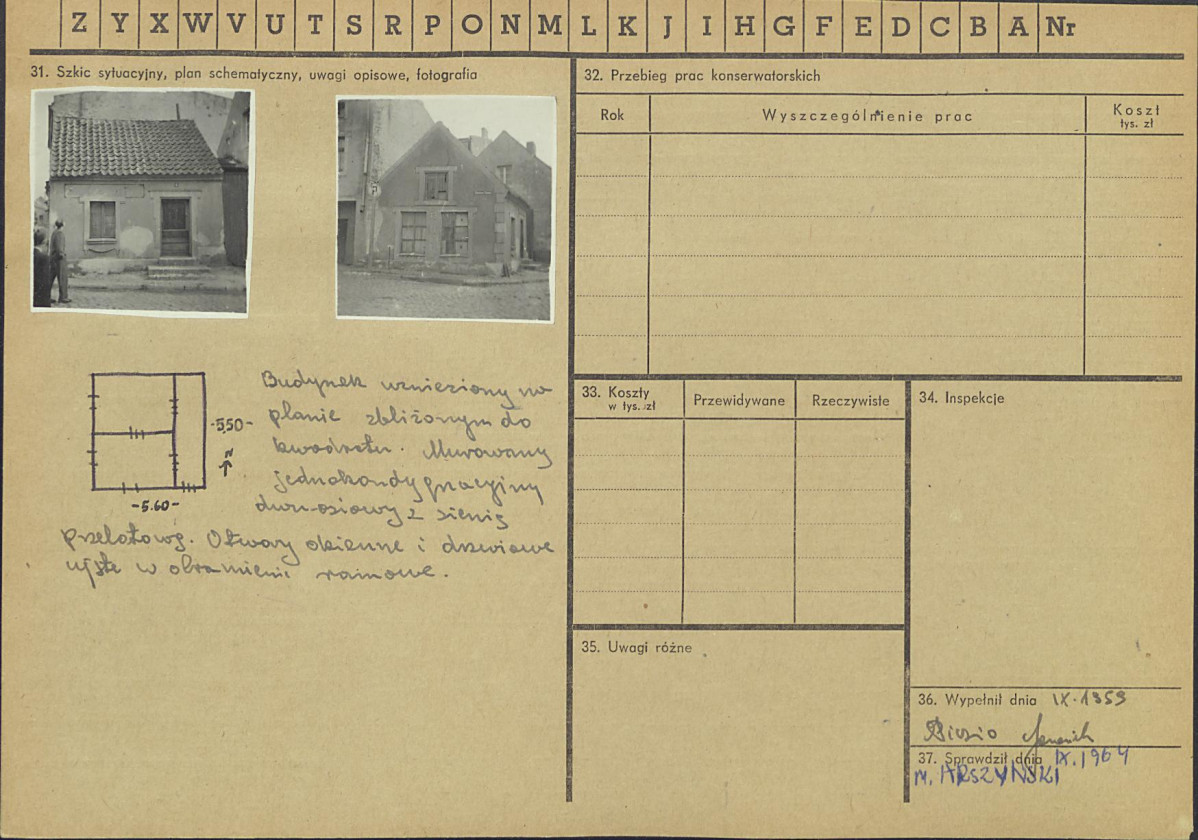 Z Y X W V U T S R P O N M L K J I H G F E D C B A Nr
31. Szkic sytuacyjny, plan schematyczny, uwagi opisowe, fotografia
-5,50-
N
-5.60-
Budynek wzniesiony na
planie zbliżonym do
kwadratu. Murowany
jednokondygnacyjny
dwu-osiowy z sienią
przelotową. Otwory okienne i drzwiowe
ujęte w obramienie ramowe.
32. Przebieg prac konserwatorskich
Rok
Wyszczególnienie prac
Koszt
tys. zł
33. Koszty
w tys. zł
Przewidywane
Rzeczywiste
34. Inspekcje
35. Uwagi różne
36. Wypełnił dnia IX.1959
37. Sprawdził dnia IX.1964
M. ARSZYŃSKI